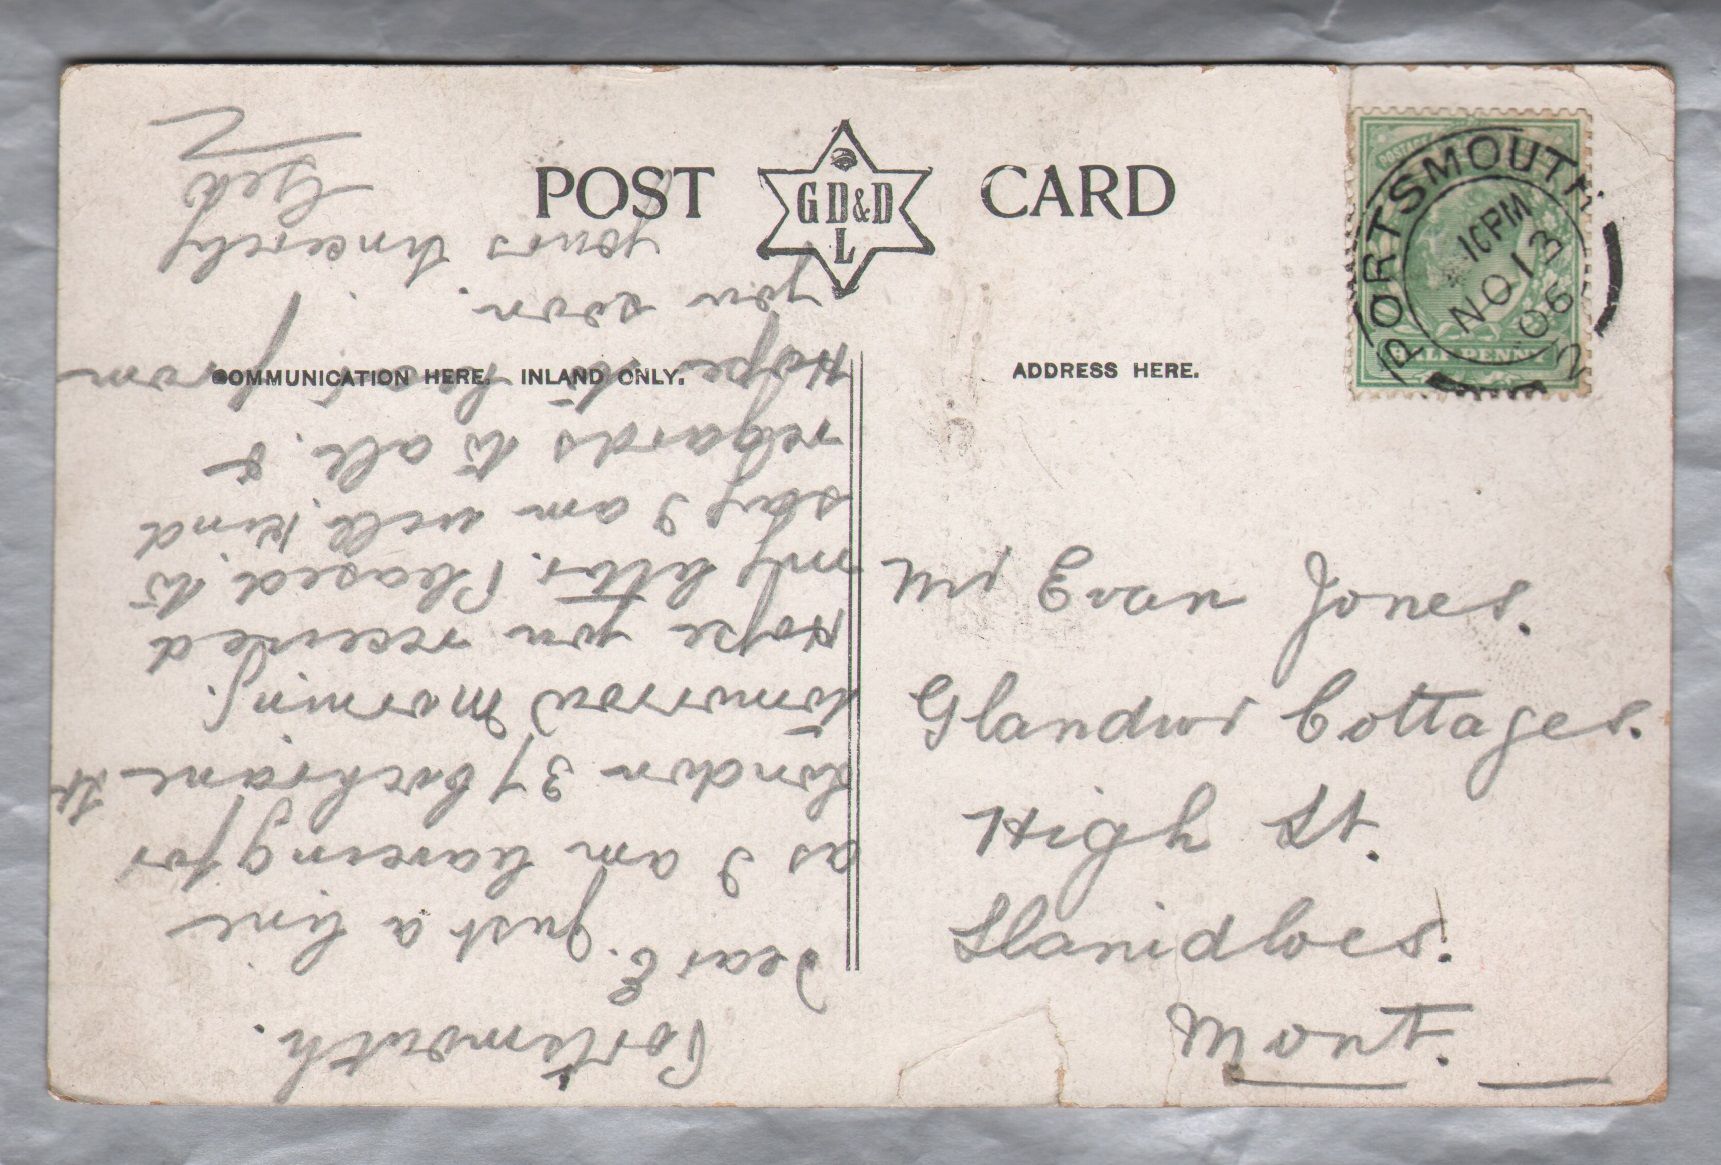 POST CARD
GD&D
L
POSTAGE
HALFPENNY
PORTSMOUTH
10 PM
NO 13
06
2
COMMUNICATION HERE. INLAND ONLY.
ADDRESS HERE.
Mr Evan Jones.
Glandwr Cottages.
High St.
Llanidloes.
Mont.
Portsmouth.
Dear E. Just a line
as I am leaveing for
London 37 St
tomorrow morning.
Hope you received
my letter. Pleased to
say I am well. Kind
regards to all. &
Hope to hear from
you soon.
yours sincerely